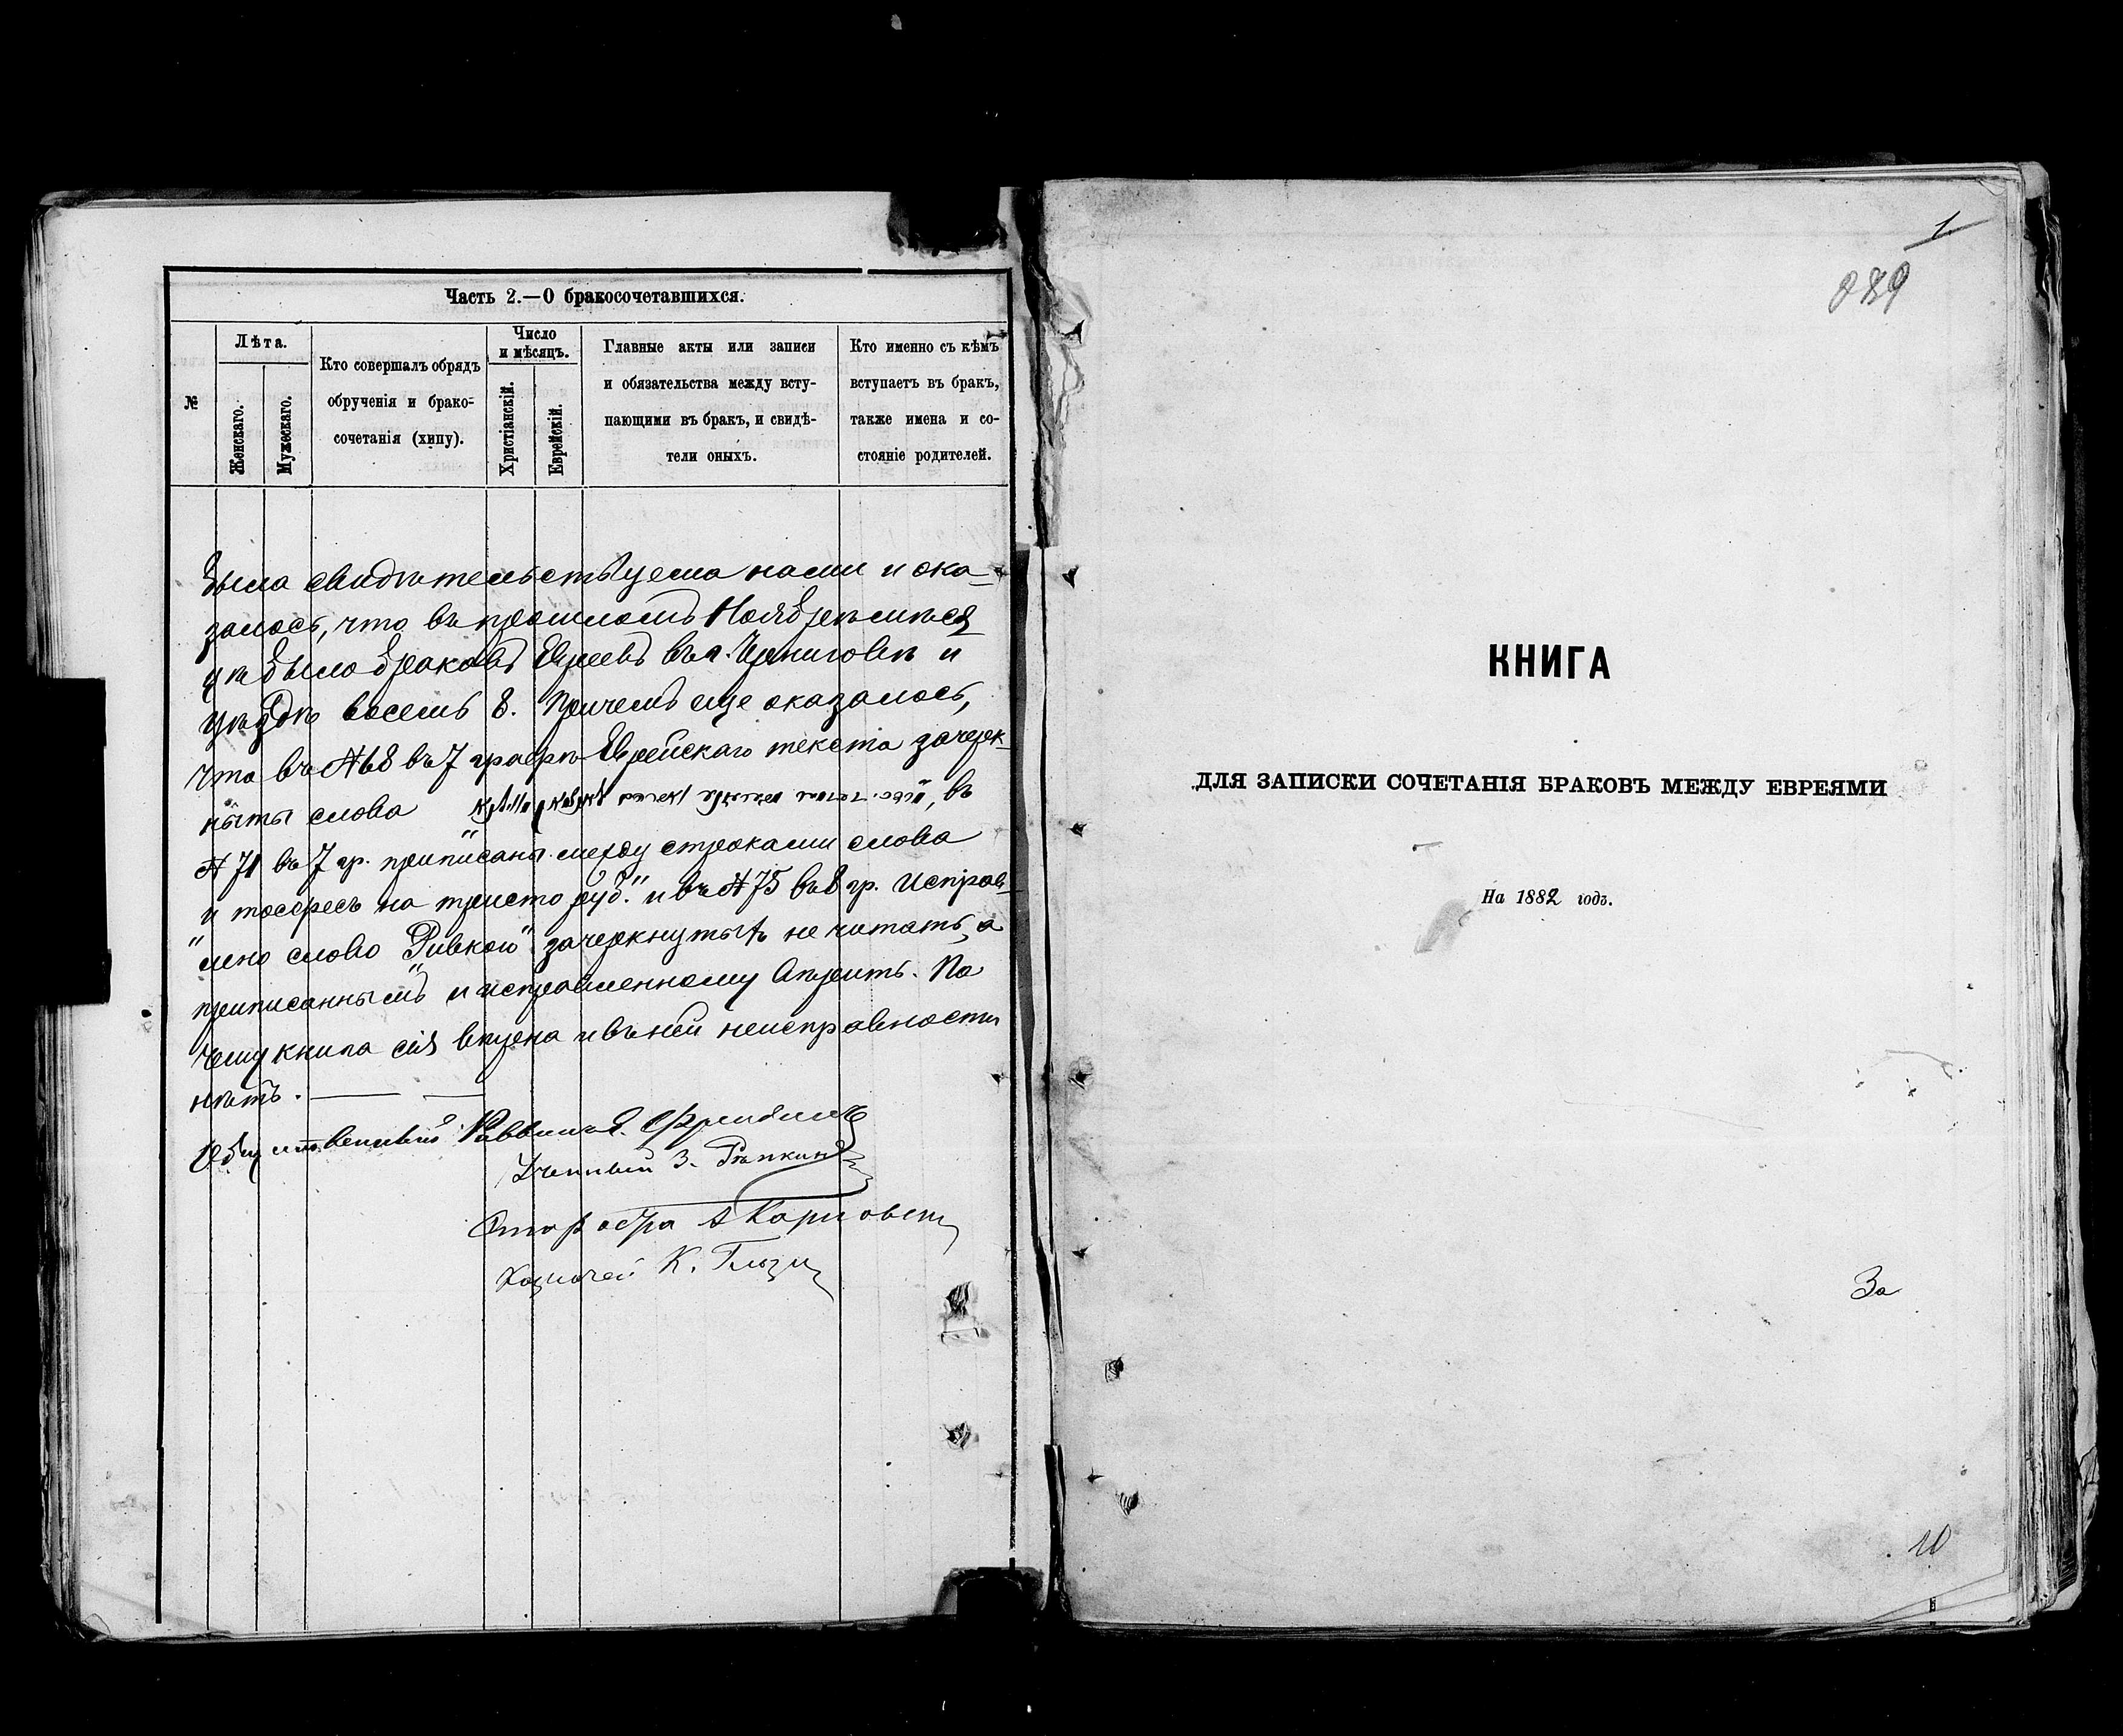 Часть 2.—О бракосочетавшихся.
№
Лѣта.
Женскаго.
Мужескаго.
Кто совершалъ обрядъ
обрученія и брако-
сочетанія (хипу).
Число
и мѣсяцъ.
Христіанскій.
Еврейскій.
Главные акты или записи
и обязательства между всту-
пающими въ бракъ, и свидѣ-
тели оныхъ.
Кто именно съ кѣмъ
вступаетъ въ бракъ,
также имена и со-
стояніе родителей.
была свидѣтельствуема нами и ока-
залось, что въ прошломъ Ноябрѣ мѣся
цѣ было браковъ Евреевъ въ г. Черниговѣ и
уѣздѣ восемь 8. Причемъ еще оказалось,
что въ №68 въ 7 графѣ Еврейскаго текста зачерк-
нуты слова въ
№ 71 въ 7 гр. приписаны между строками слова
„и тосфесъ на триста руб." и въ №75 въ 8 гр. исправ-
лено слово „Ривкою" зачеркнутыя не читать, а
приписаннымъ и исправленному вѣрить. По
чему книга сія вѣрна и въ ней неисправности
нѣтъ. —— ——
Общественный Раввинъ
Ученый З. Рапкинъ
Староста А
Казначей К.
1.
089
КНИГА
ДЛЯ ЗАПИСКИ СОЧЕТАНІЯ БРАКОВЪ МЕЖДУ ЕВРЕЯМИ
На 1882 годъ.
За
10